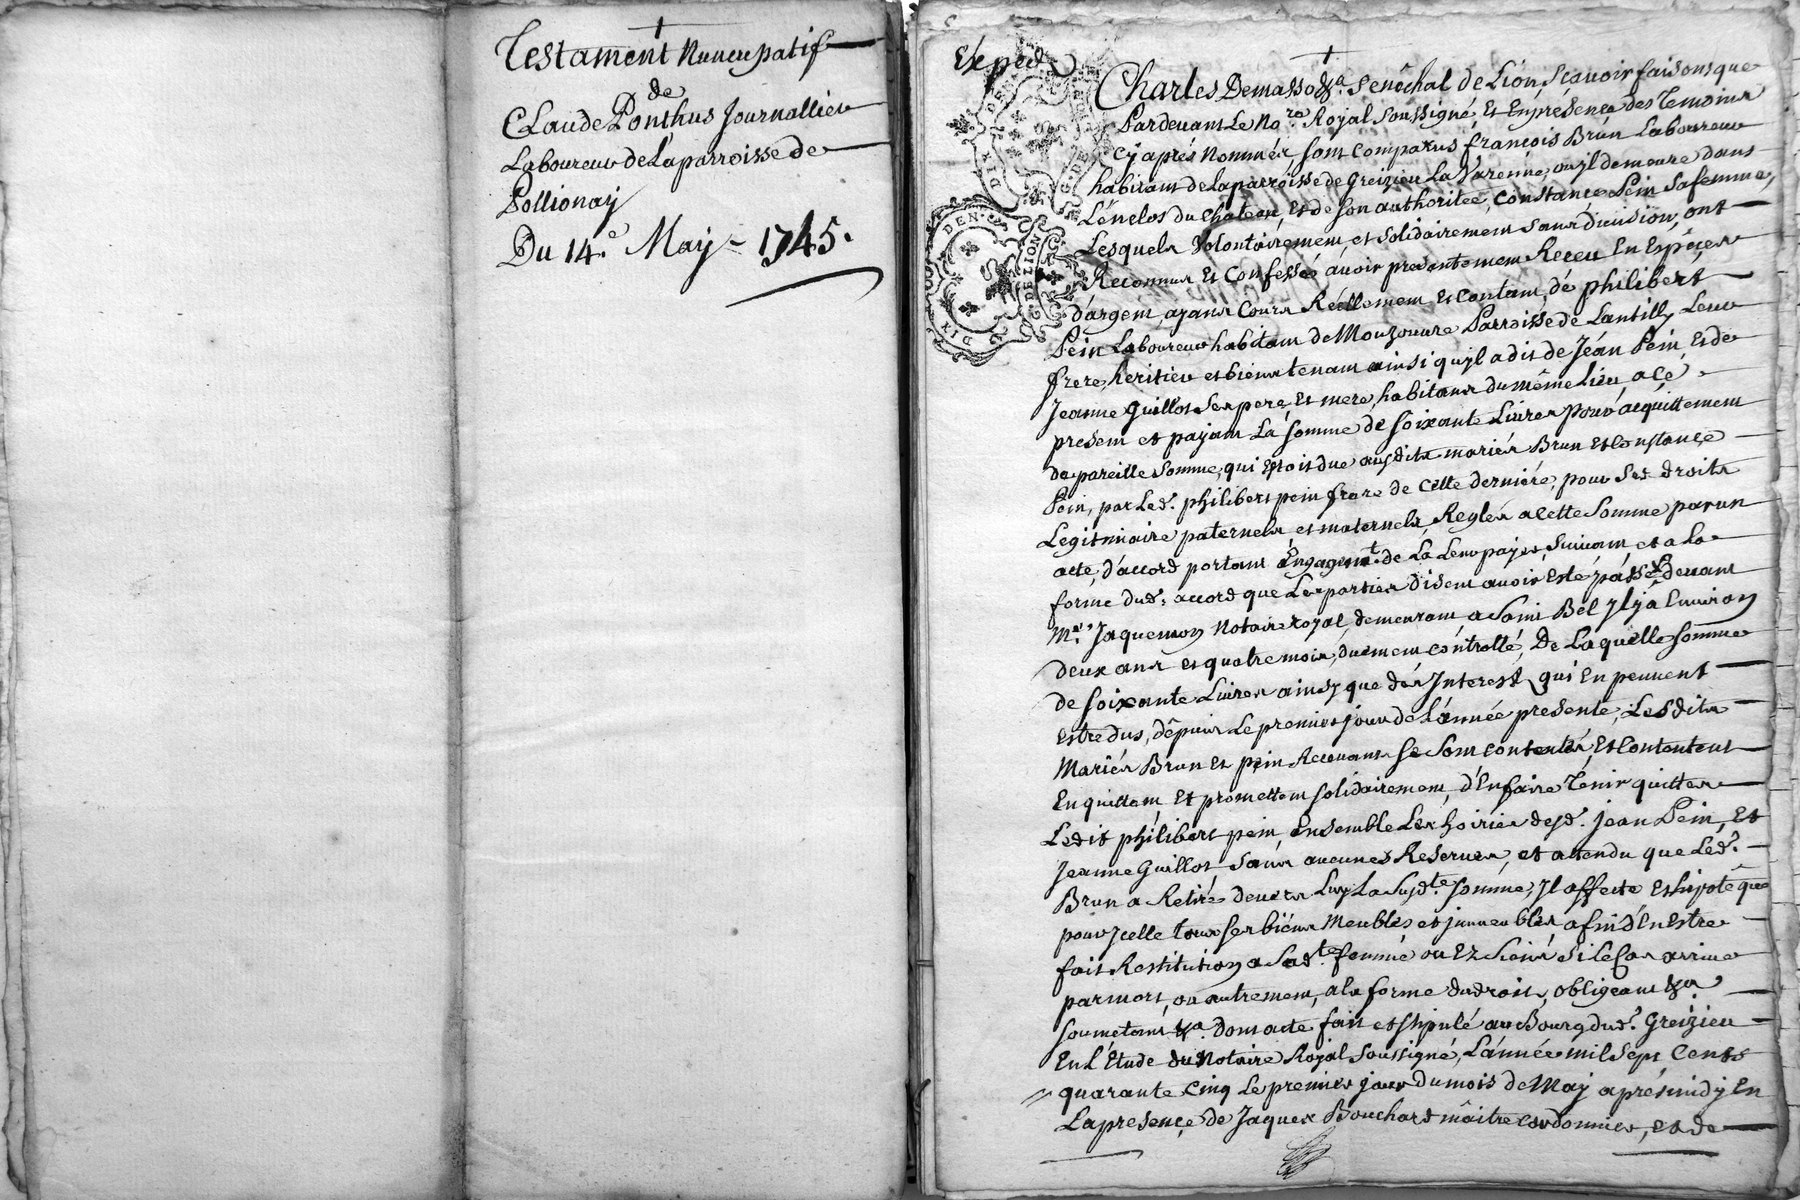 Testament Nuncupatif
de
Claude Ponthus Journallier
Laboureur de La parroisse de
Pollionaÿ
Du 14.e Maÿ 1745.
Expéd
Charles Demasso &a. Senêchal de Lion, Scavoir faisons que
Pardevant Le No.re Royal soussigné Et En présence des Temoins
Cÿ aprés Nommés, sont Comparus françois Brun Laboureur
habitant de La parroisse de Greizieu La Varenne, ou jl demeure dans
L'énclos du Chateau, Et de son authoritée, Constance Pein sa femme,
Lesquels Volontairement et solidairement sans division, ont
Reconnus Et Confessés avoir presentement Receu En Espêces
d'argent, ayans Cours Réellement Et Contant, dé philibert
Pein Laboureur habitant de Mouzouvre Parroisse de Lantilly Leur
frere, heritier et bienstenant ainsi qu'jl a dit de Jéan Pein, Et de
Jeanne Guillot ses pere, Et mere, habitans du même Lieu, a cé
present et payant La somme de soixante Livres pour acquittement
de pareille somme, qui Estoit due ausdits mariés Brun Et Constance
Pein, par Led. philibert pein frere de cette derniére, pour ses droits
Legitimaire paternels, et maternels, Reglés a cette somme par un
acte d'accord portant Engagemt. de La Leur payer, suivant et a La
forme dud. accord que Les parties disent avoir Esté passé devant
Me. Jaquemon Notaire royal, demeurant a Saint Bel jl ÿ a Environ
deux ans et quatre mois, duëment contrôllé, De Laquelle somme
de soixante Livres ainsy que dés Interest qui En peuvent
Estre dus, dêpuis Le premier jour de L'année presente, Lesdits
Mariés Brun Et pein Recevants se sont contentés, Et Contentent
En quittent Et promettent solidairement, d'En faire Tenir quittes
Ledit philibert pein, Ensemble Les hoiries desd. jean Pein, Et
Jeanne Guillot, sans aucunes Reserves, et attendu que Led.
Brun a Retiré devers Luy La susd.te somme, jl affecte Et hipotêque
pour jcelle tous ses biëns Meubles et jmmeubles, afin d'En Estre
fait Restitution a sad.te femme ou Ez Siéns si Le Cas arrive
par mort, ou autrement, a la forme du droit, obligeant &a
soumetant &a. dont acte fait et stipulé au Bourg dud. Greizieu
En L'Etude du Notaire Royal soussigné, L'année mil sept Cents
quarante Cinq Le premier jour du mois de Maÿ aprés midÿ En
La presençe de Jaques Bouchard mâitre cordonnier, et de